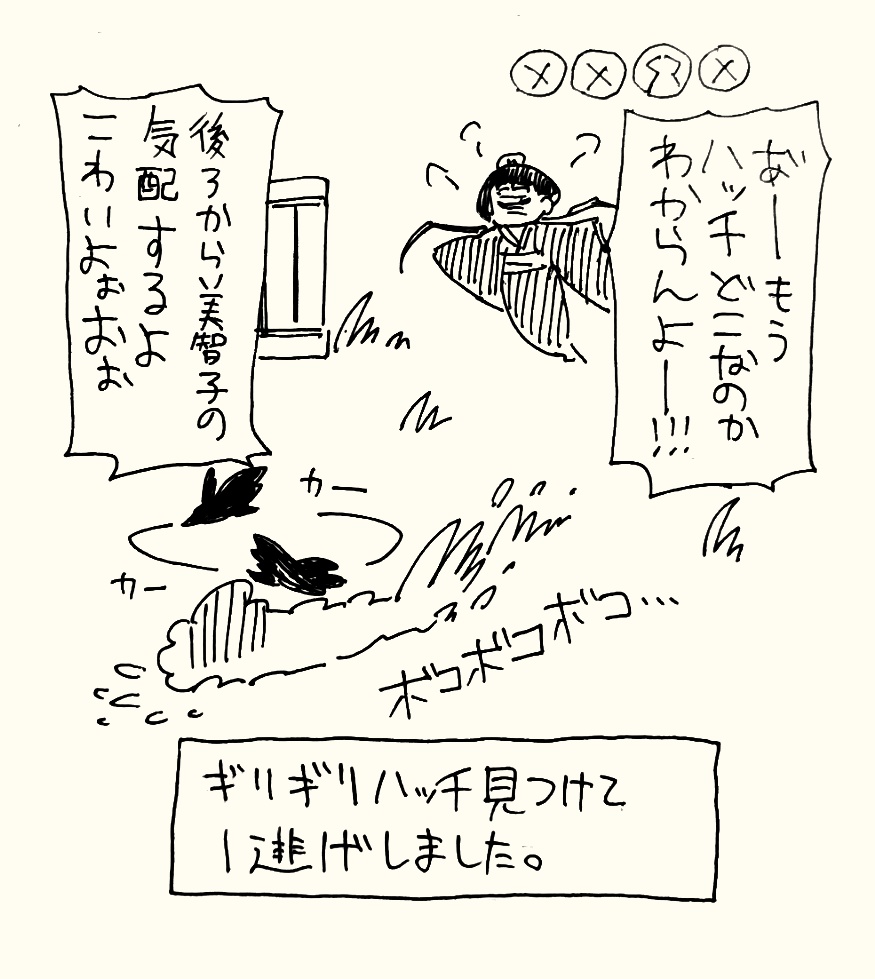 あ゛ーもう
ハッチどこなのか
わからんよー!!!
後ろから美智子の
気配するよ
こわいよぉおぉ
カー
カー
ボコボコボコ…
ギリギリハッチ見つけて
1逃げしました。